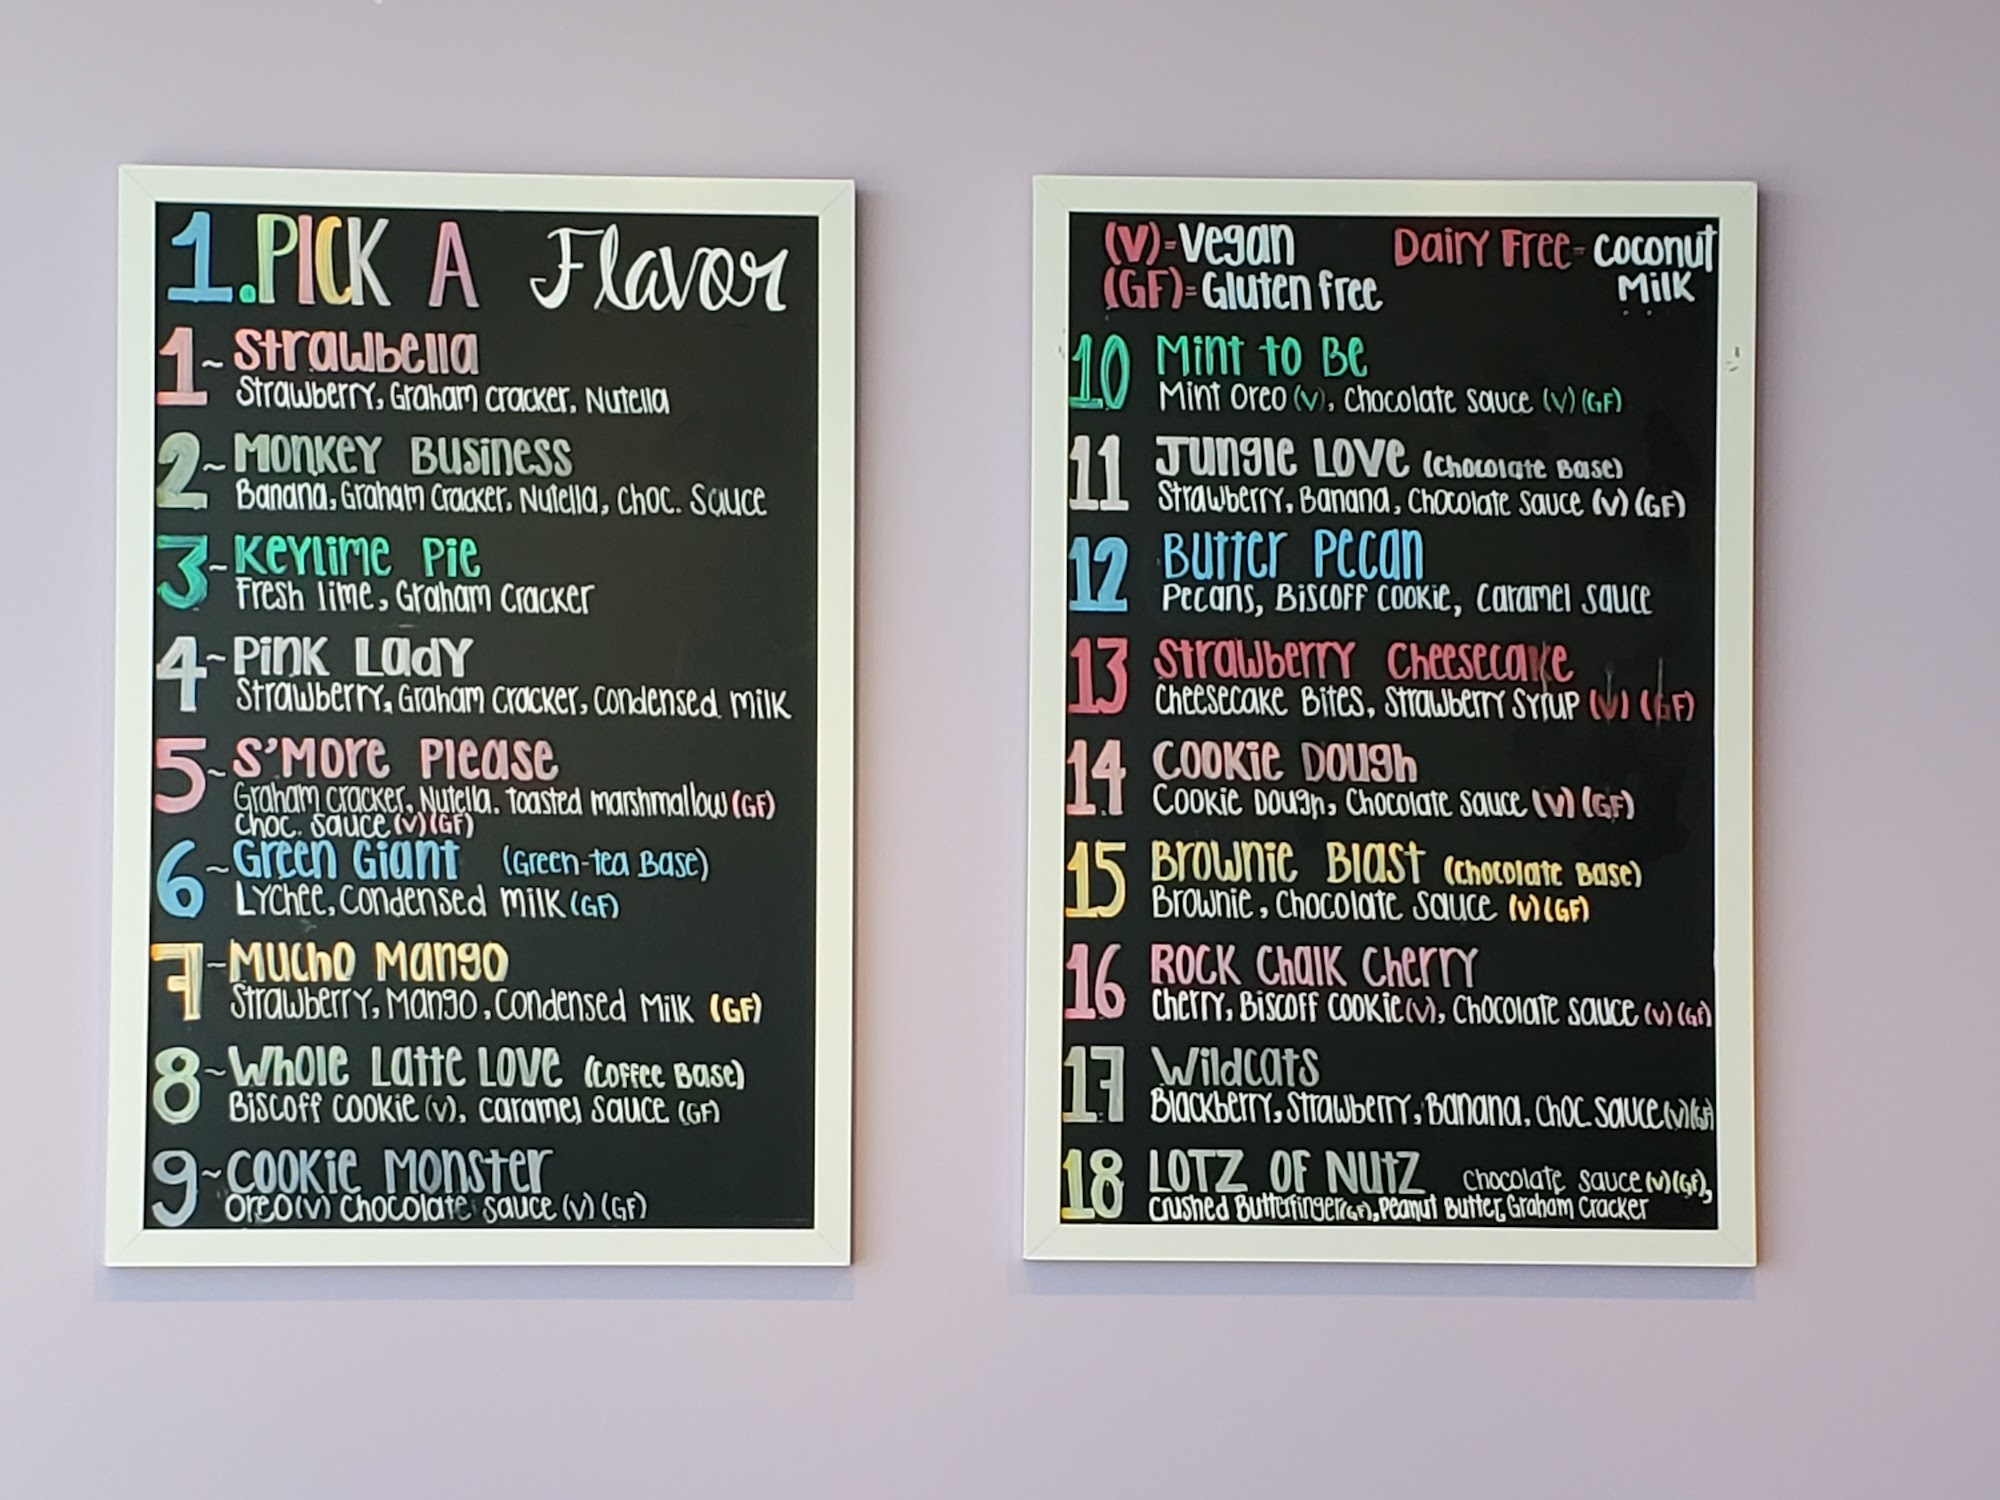 1. PICK A Flavor
1~ Strawbella
Strawberry, Graham cracker, Nutella
2~ Monkey Business
Banana, Graham Cracker, Nutella, choc. Sauce
3~ Keylime Pie
Fresh lime, Graham Cracker
4~ Pink Lady
Strawberry, Graham cracker, condensed milk
5~ S'more Please
Graham cracker, Nutella, toasted marshmallow (GF)
choc. sauce (v) (GF)
6~ Green Giant (Green-tea Base)
Lychee, condensed milk (GF)
7~ Mucho Mango
Strawberry, Mango, Condensed Milk (GF)
8~ Whole Latte Love (coffee Base)
Biscoff cookie (v), caramel sauce (GF)
9~ Cookie Monster
oreo (v) chocolate sauce (v) (GF)
(V)=Vegan Dairy Free= coconut
(GF)=Gluten free Milk
10 Mint to Be
Mint oreo (v), chocolate sauce (v) (GF)
11 Jungle Love (chocolate Base)
Strawberry, Banana, chocolate sauce (v) (GF)
12 Butter Pecan
Pecans, Biscoff cookie, caramel sauce
13 Strawberry Cheesecake
cheesecake Bites, Strawberry Syrup (v) (GF)
14 Cookie Dough
Cookie Dough, Chocolate sauce (v) (GF)
15 Brownie Blast (chocolate Base)
Brownie, chocolate sauce (v) (GF)
16 Rock Chalk Cherry
cherry, Biscoff cookie (v), chocolate sauce (v) (GF)
17 Wildcats
Blackberry, Strawberry, Banana, Choc. sauce (v) (GF)
18 Lotz of Nutz chocolate sauce (v) (GF),
crushed Butterfinger (GF), Peanut Butter, Graham Cracker